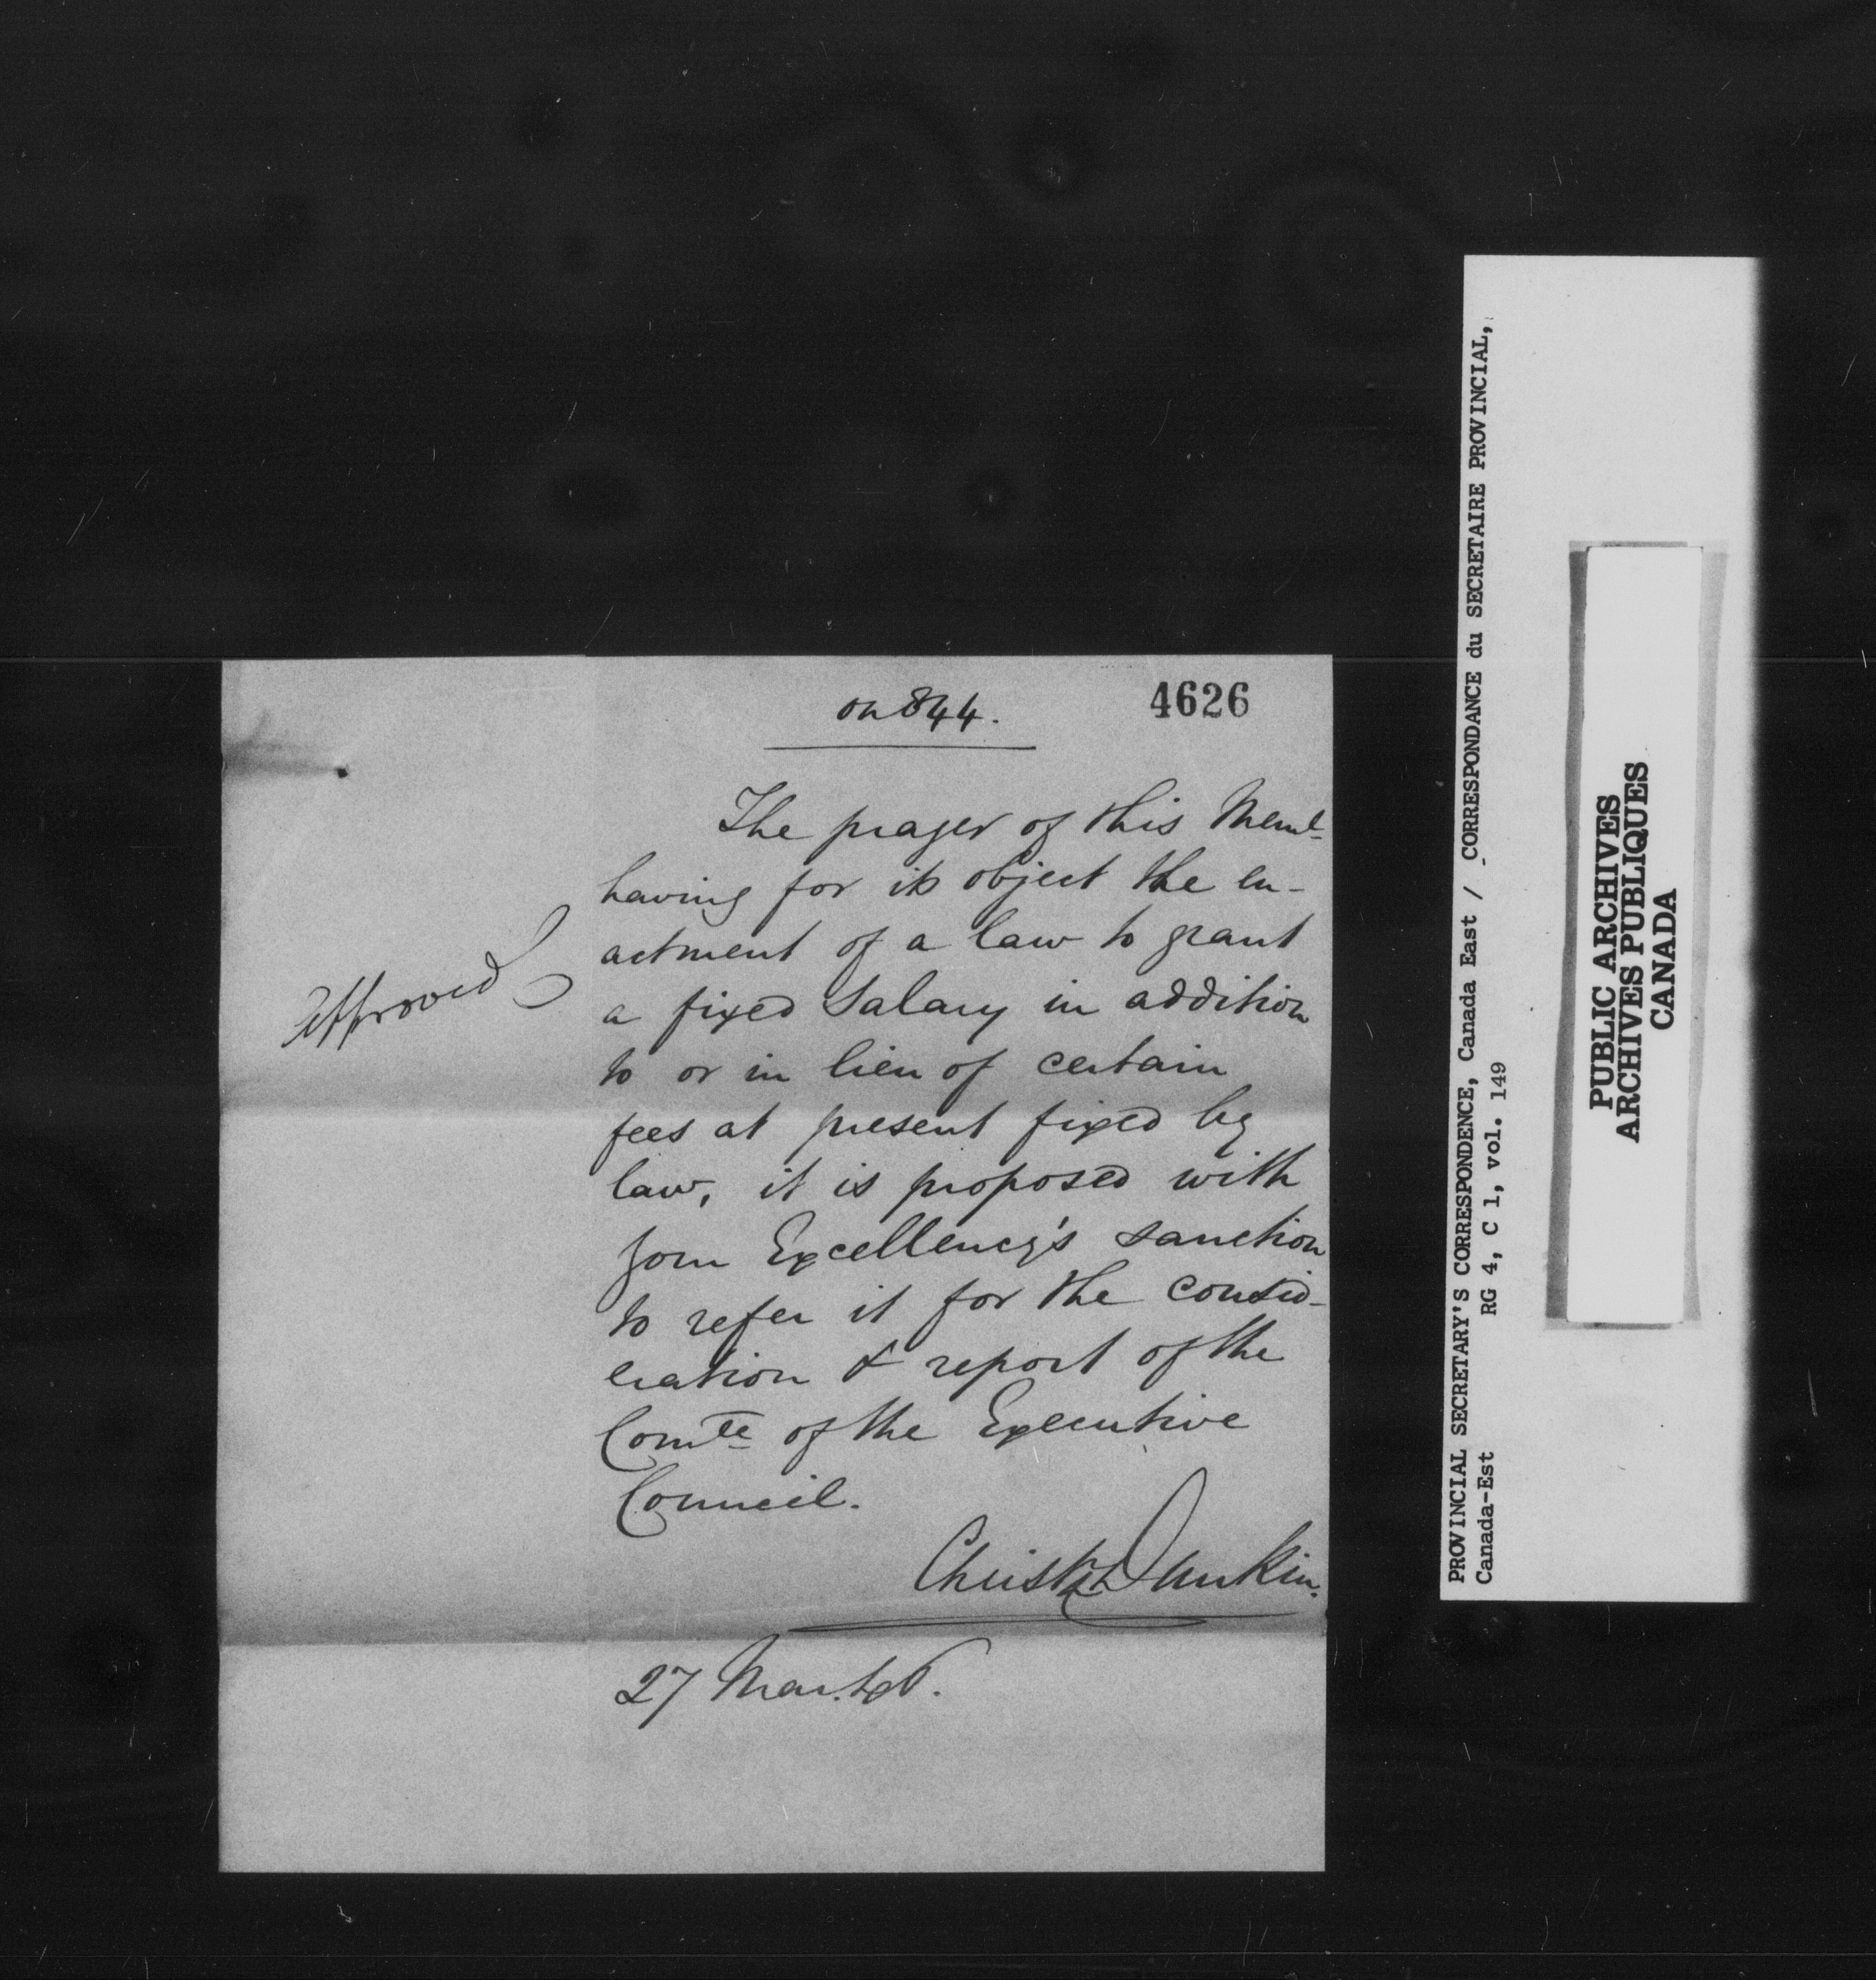 on 844.
4626
The prayer of this Meml-
having for its object the en-
actment of a law to grant
a fixed Salary in addition
to or in lieu of certain
fees at present fixed by
law, it is proposed with
your Excellency's sanction
to refer it for the consid-
eration & report of the
Comtee of the Executive
Council.
Christr Dunkin.
27 Mar. 46.
Approved
PROVINCIAL SECRETARY'S CORRESPONDENCE, Canada East / CORRESPONDANCE du SECRETAIRE PROVINCIAL,
Canada-Est RG 4, C 1, vol. 149
PUBLIC ARCHIVES
ARCHIVES PUBLIQUES
CANADA